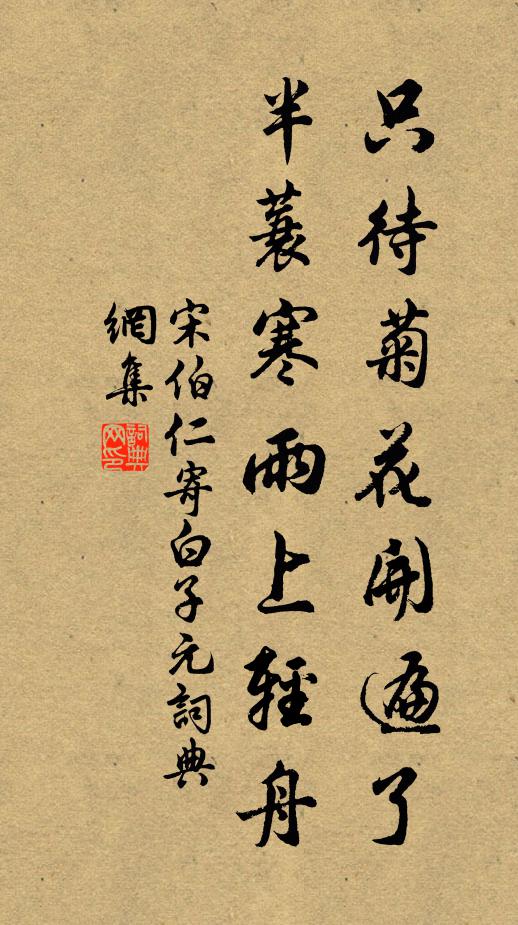 只待菊花開遍了
半蓑寒雨上輕舟
宋伯仁寄白子元詞典
網集
詞典網印